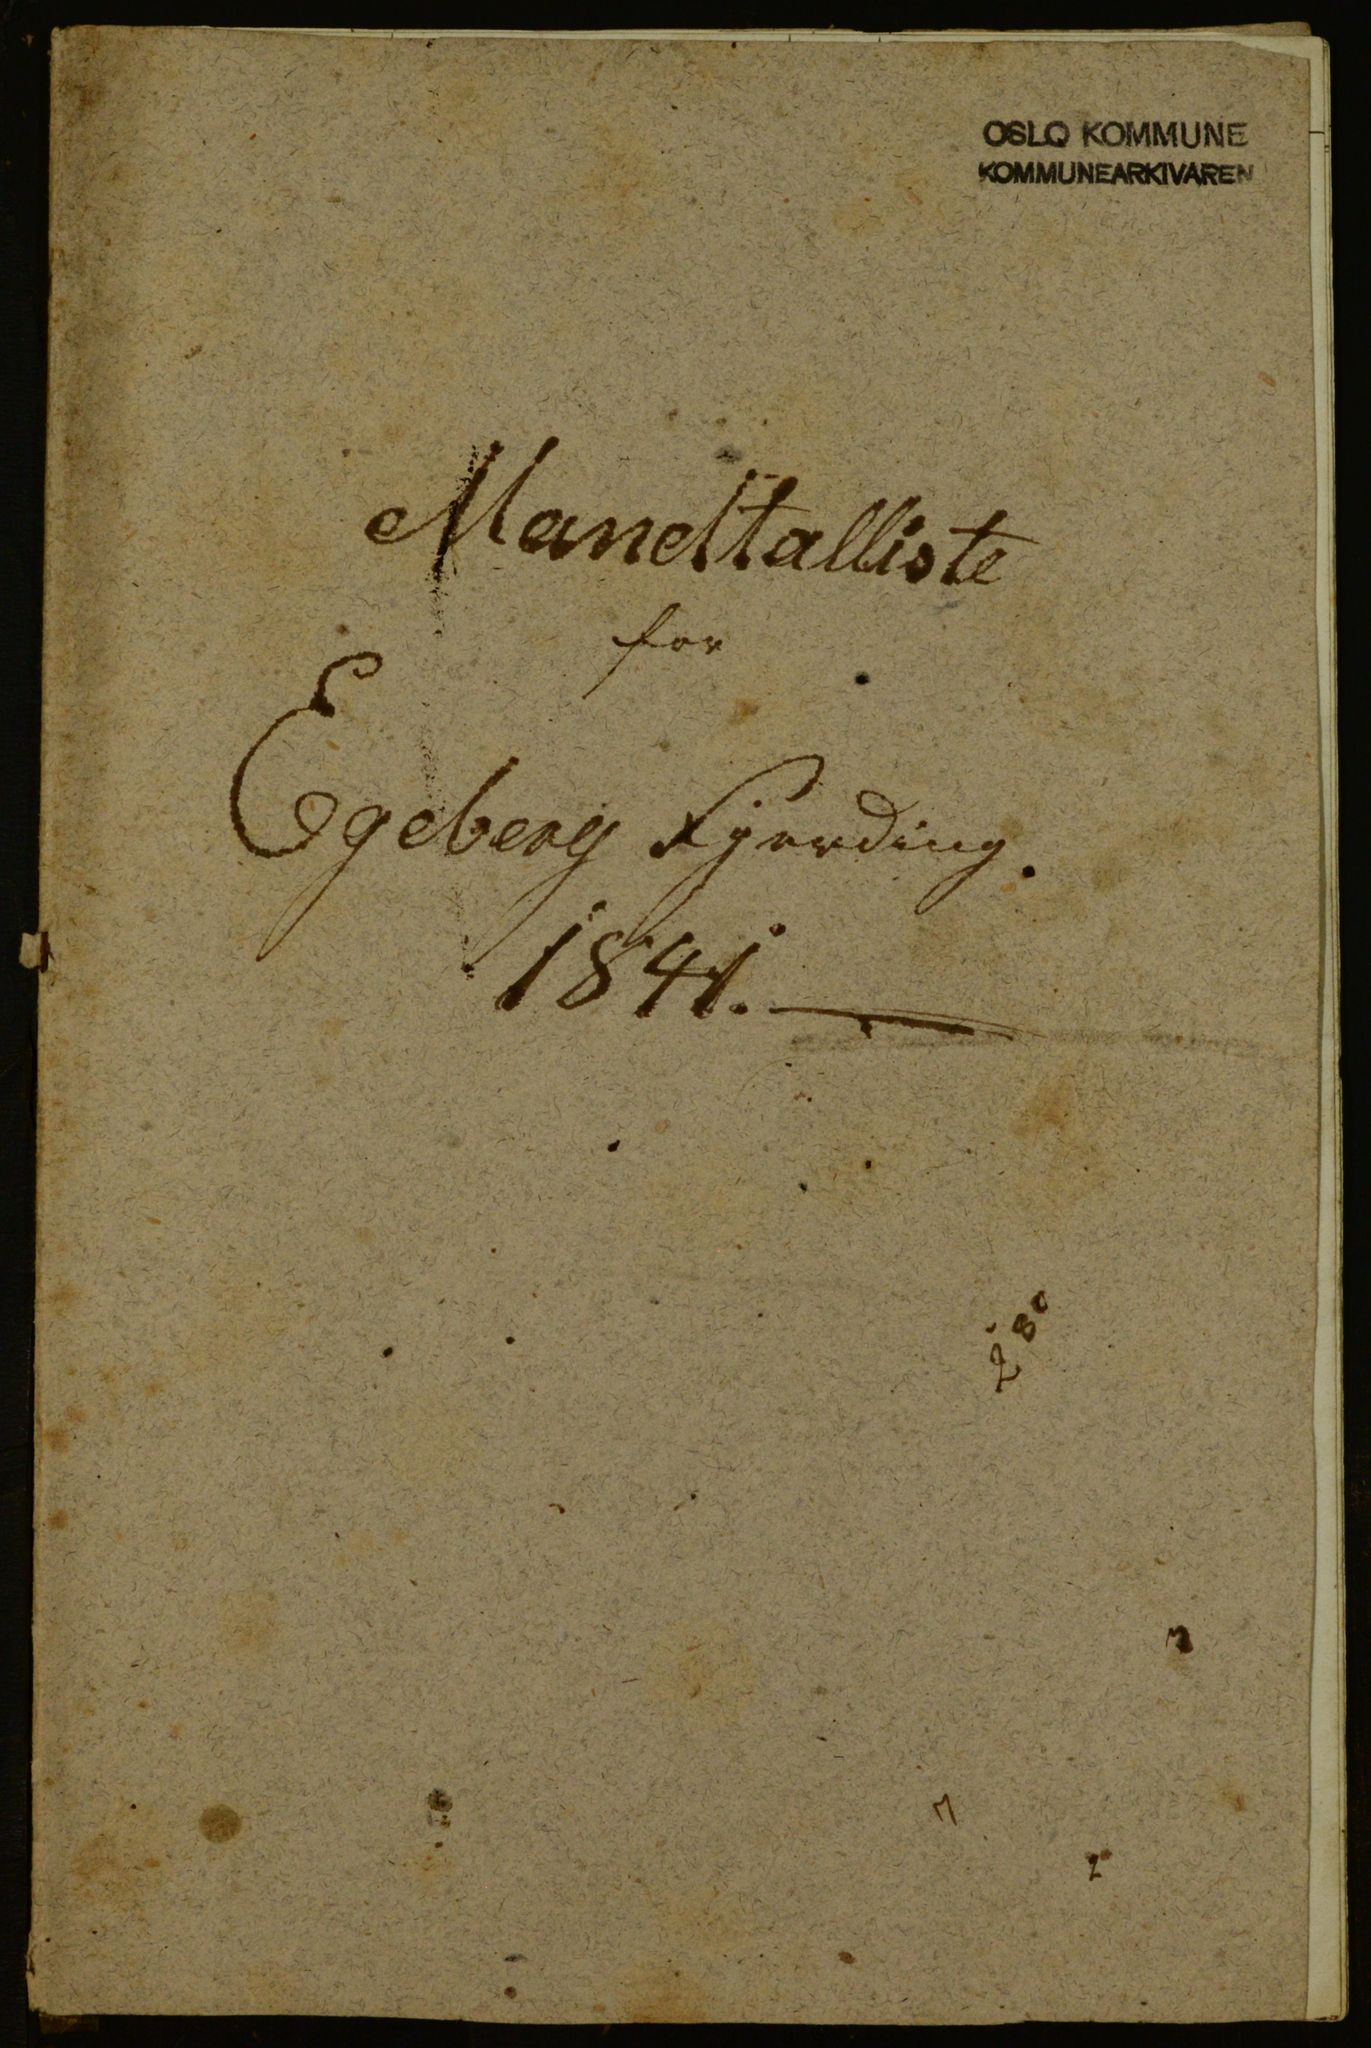 OSLO KOMMUNE
KOMMUNEARKIVAREN
Mandtalliste
for
Egeberg Fjerding.
1841.
280